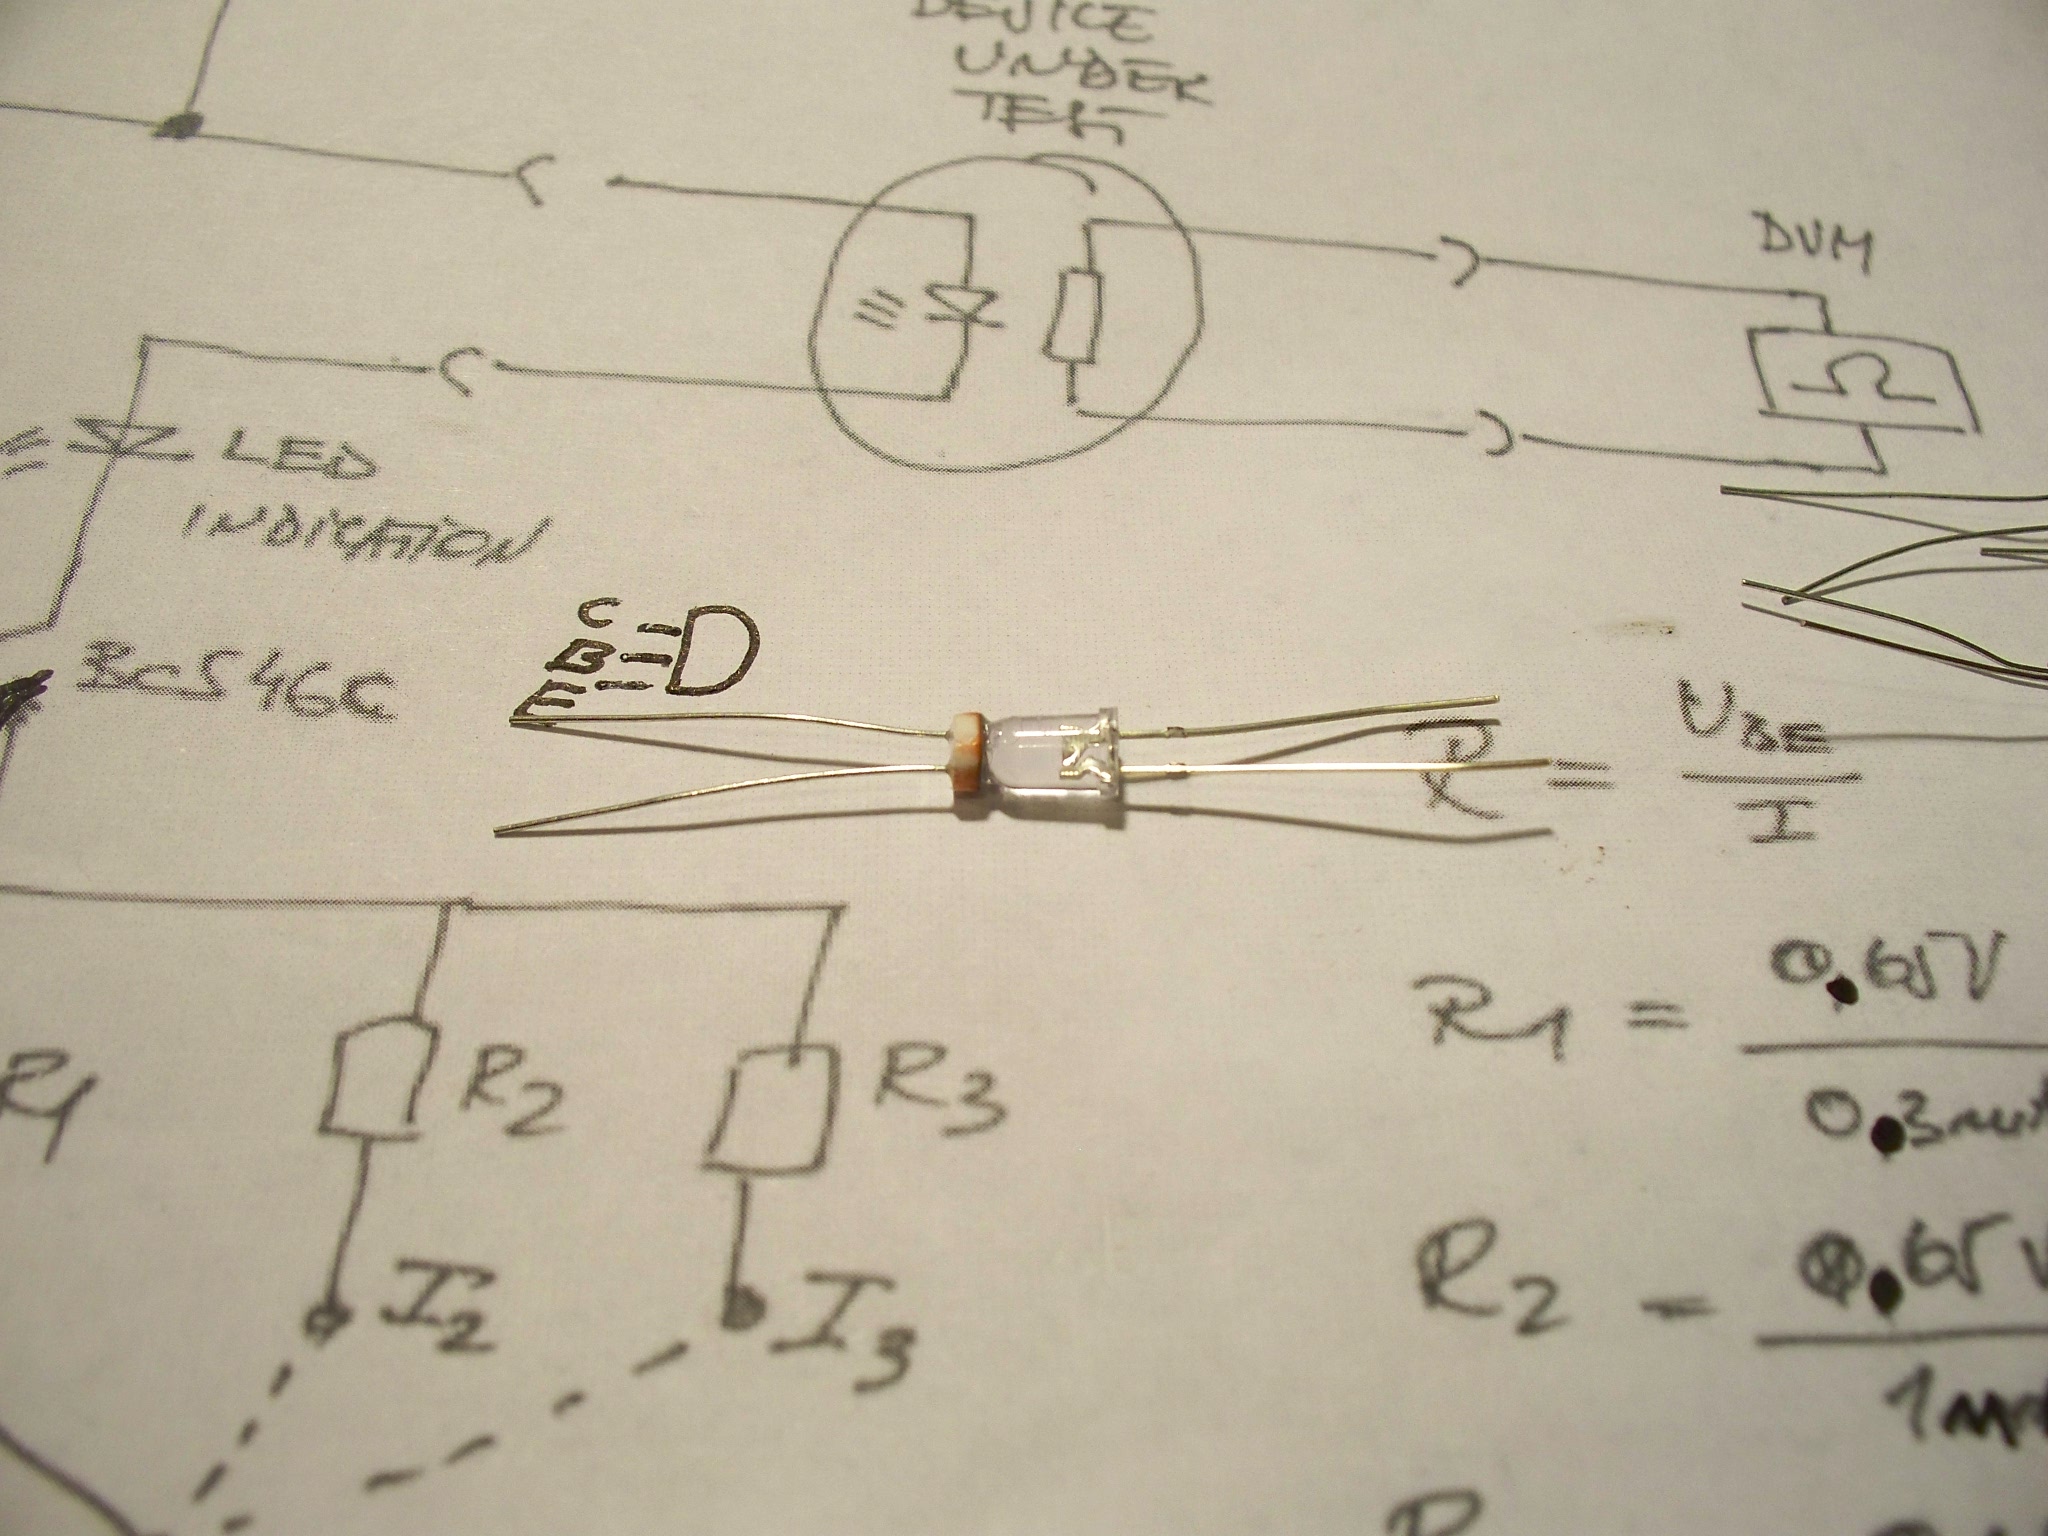 DEVICE
UNDER
TEST
DVM
Ω
LED
INDICATION
C
B
E
BC546C
R = UBE
I
R1
R2
R3
I2
I3
R1 = 0.65V
0.3mA
R2 = 0.65V
1mA
R